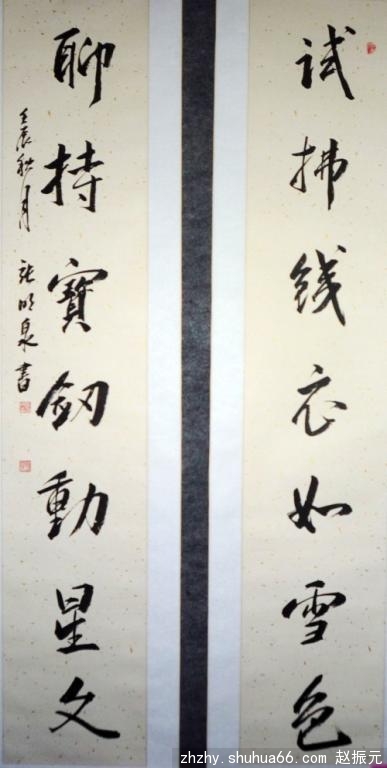 试拂鐵衣如雪色
聊持寶釼動星文
壬辰秋月 张明泉書
zhzhy.shuhua66.com 赵振元